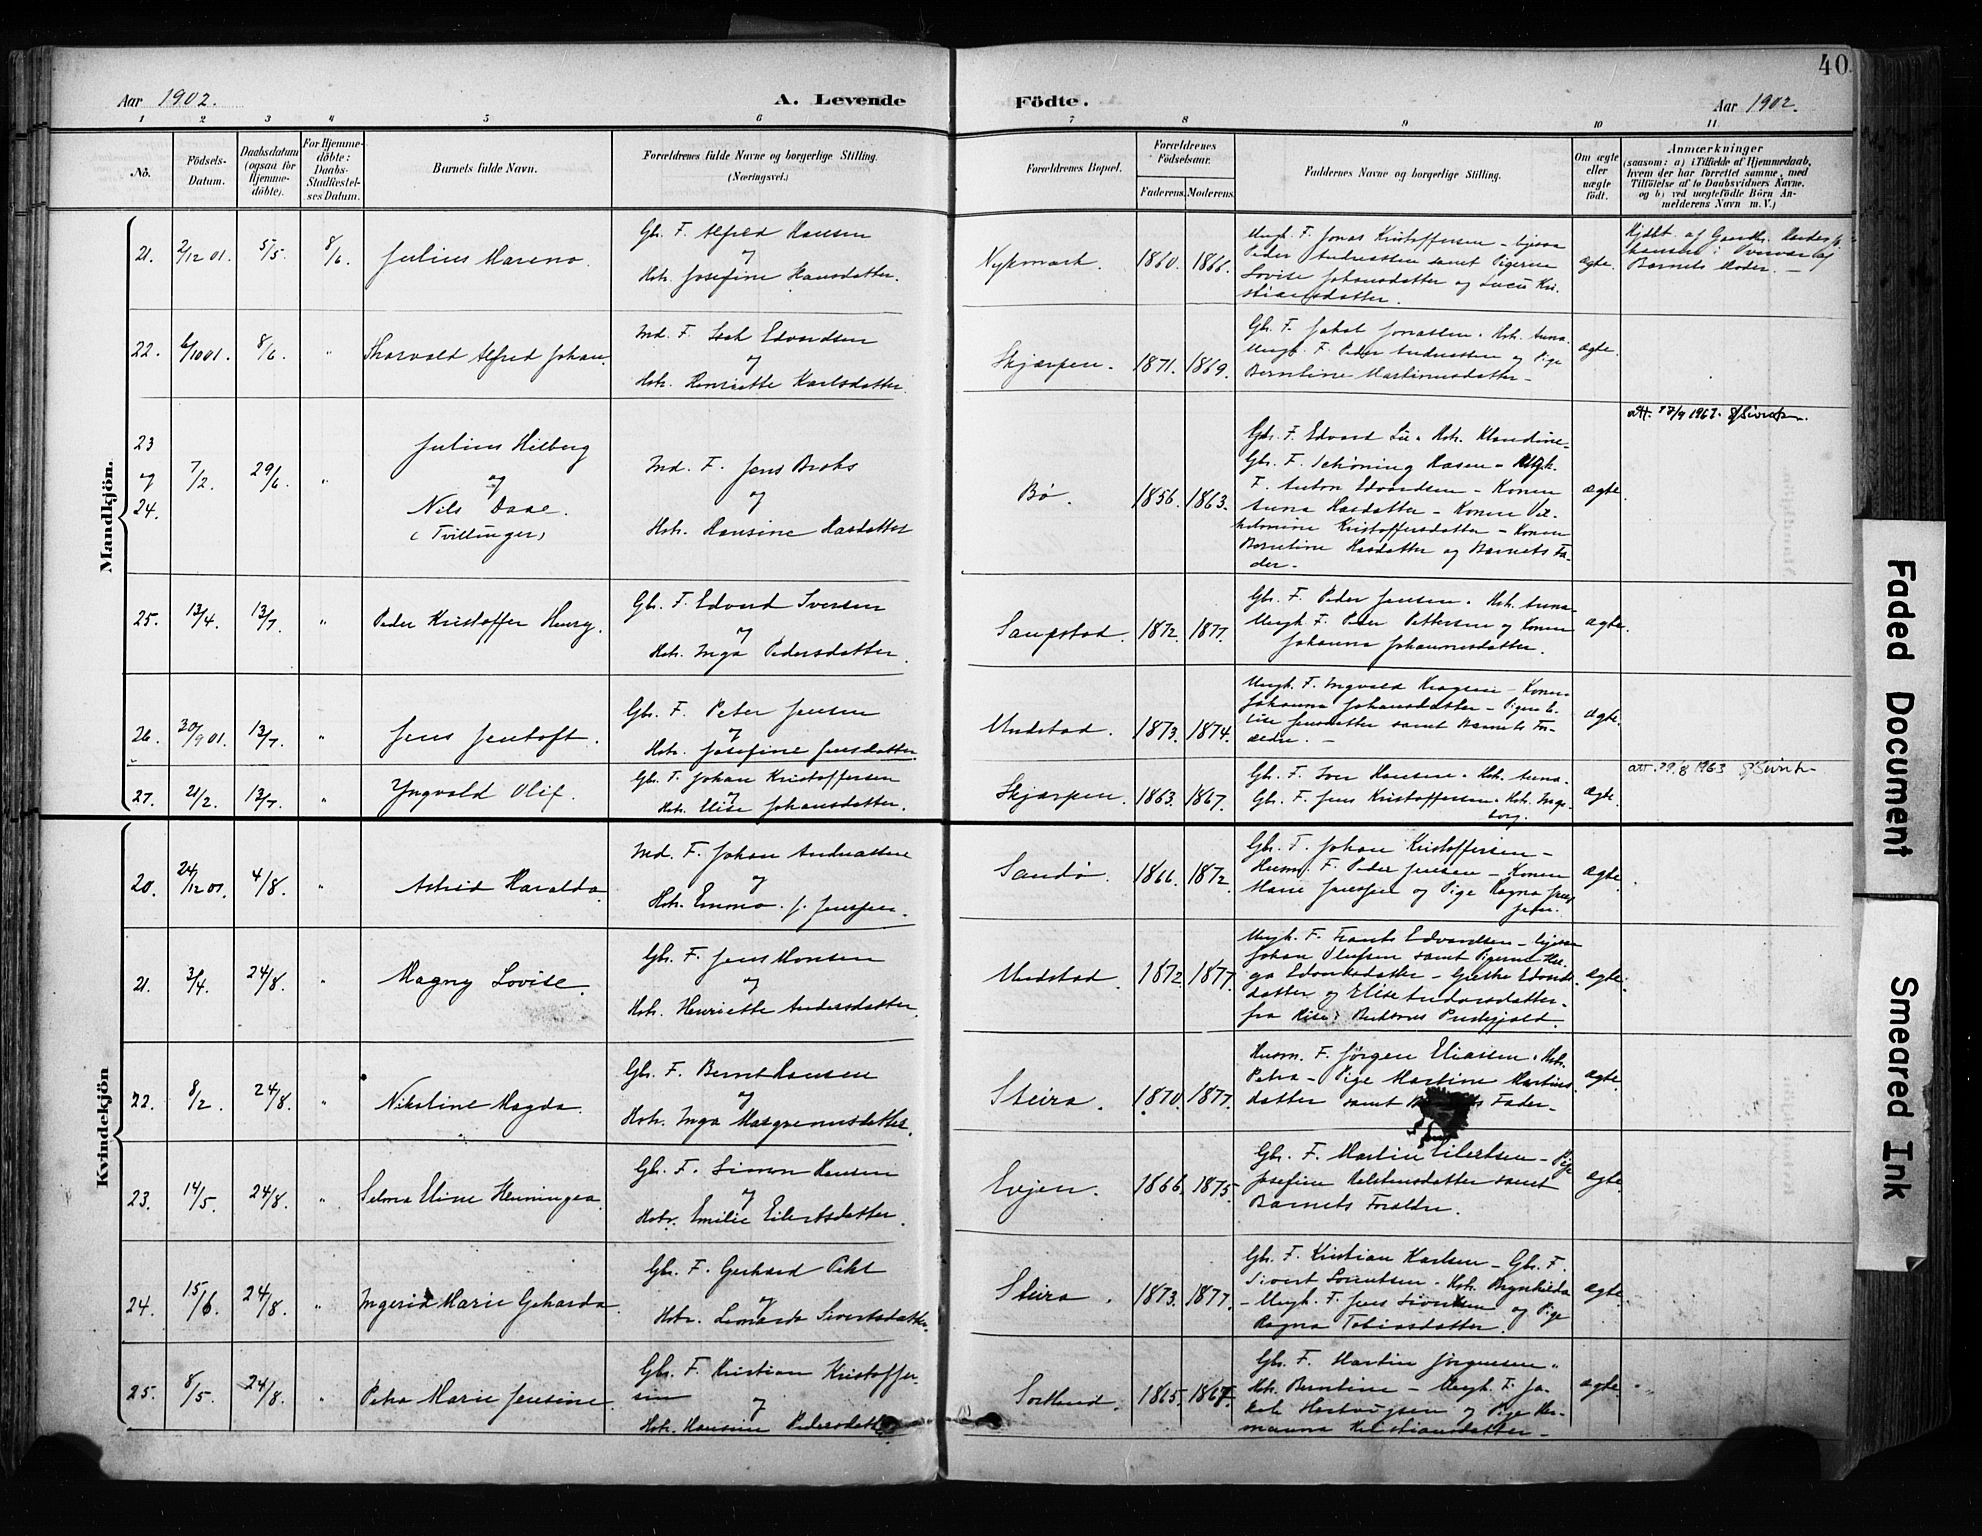 40.
Aar 1902. A. Levende Födte. Aar 1902.
1 2 3 4 5 6 7 8 9 10 11
No. Födsels-Datum. Daabsdatum (ogsaa for Hjemmedöbte). For Hjemmedöbte: Daabs-Stadfæstelses Datum. Barnets fulde Navn. Forældrenes fulde Navne og borgerlige Stilling. (Næringsvei.) Forældrenes Bopæl. Forældrenes Födselsaar. Faderens. Moderens. Faddernes Navne og borgerlige Stilling. Om ægte eller uægte födt. Anmærkninger (saasom: a) i Tilfælde af Hjemmedaab, hvem der har forrettet samme, med Tilföielse af to Daabsvidners Navne, og b) ved uægtefödte Börn Anmelderens Navn m. V.)
Mandkjön.
21. 2/12 01. 5/5. 8/6. Julius Mareno.
Gbr. F. Alfred Hansen
og
Hstr. Josefine Hansdatter.
Nykmark. 1860. 1866.
Ungk. F. Jonas Kristoffersen - ligesaa
Peder Andreassen samt Pigerne
Lovise Johansdatter og Lucie Kristiansdatter.
ægte.
Barnets Moder. -
22. 6/10 01. 8/6. " Thorvald Alfred Johan.
Ind. F. Isak Edvardsen
og
Hstr. Henriette Karlsdatter.
Skjærpen. 1871. 1869.
Gbr. F. Jakob Jonassen. Hstr. Anna.
Ungk. F. Peder Andreassen og Pige
Berntine Martinusdatter -
ægte.
23 og 24. 7/2. 29/6. "
Julius Hilberg
og
Nils Daae.
(Tvillinger)
Ind. F. Jens Broks
og
Hstr. Hansine Hasdatter
Bø. 1856. 1863.
Gbr. F. Edvard Lie. Hstr. Klaudine -
Gbr. F. Schøning Hasen - Ungk.
F. Anton Edvardsen - Konen
Anna Hasdatter - Konen Vilhelmine Kristoffersdatter - Konen
Berntine Hasdatter og Barnets Fader. -
ægte.
att. 27/9 1962.
25. 13/4. 13/7. " Peder Kristoffer Henry.
Gbr. F. Edvard Iversen
og
Hstr. Inga Pedersdatter.
Saupstad. 1872. 1877.
Gbr. F. Peder Jensen. Hstr. Anna -
Ungk. F. Peder Pettersen og Konen
Johanna Johannesdatter.
ægte.
26. 30/9 01. 13/7. " Jens Jentoft.
Gbr. F. Peter Jensen
og
Hstr. Josefine Jensdatter.
Undstad. 1873. 1874.
Ungk. F. Ingvald - Konen
Johanna Johansdatter - Pigen Elise Jensdatter samt Barnets Forældre. -
ægte.
27. 21/2. 13/7. " Yngvald Olif.
Gbr. F. Johan Kristoffersen
og
Hstr. Elise Johansdatter.
Skjærpen. 1863. 1867.
Gbr. F. Iver Hansen. Hstr. Anna.
Gbr. F. Jens Kristoffersen. Hstr. Ingeborg.
Ægte.
att. 29.8 1963
Kvindekjön
20. 24/12 01. 4/8. " Astrid Haralda
Ind. F. Johan Andreassen
og
Hstr. Emma f. Jenssen.
Sandø. 1866. 1872.
Gbr. F. Johan Kristoffersen -
Husm. F. Peder Jensen - Konen
Marie Jenssen og Pige Ragna Jenssen.
Ægte.
21. 3/4. 24/8. " Magny Lovise.
Gbr. F. Jens Monsen
og
Hstr. Henriette Andersdatter.
Undstad. 1872. 1877.
Ungk. F. Frants Edvardsen - ligesaa
Johan Olufsen samt Pigerne Helga Edvardsdatter - Grethe Edvardsdatter og Elise Andorsdatter -
fra i Buksnes Prestegjeld.
ægte.
22. 8/2. 24/8. " Nikoline Magda.
Gbr. F. Bernt Hansen
og
Hstr. Inga Margrenusdatter.
Steira. 1870. 1877.
Husm. F. Jørgen Eliassen. Hstr.
Petra - Pige Martine Martinsdatter samt Fader -
ægte.
23. 14/5. 24/8. " Selma Eline Henningea.
Gbr. F. Simon Hansen
og
Hstr. Emilie Eilertsdatter.
Evjen. 1866. 1875.
Gbr. F. Martin Eilertsen - Pige
Josefine samt
Barnets Forældre.
ægte.
24. 15/6. 24/8. " Ingerid Marie Geharda.
Gbr. F. Gerhard
og
Hstr. Leonarda Sivertsdatter.
Steira. 1873. 1877.
Gbr. F. Kristian Karlsen - Gbr. F.
Sivert Sørentsen. Hstr. Brynhilda
- Ungk. F. Jens Sivertsen og Pige
Ragna Tobiasdatter.
ægte.
25. 8/5. 24/8. " Petra Marie Jensine.
Gbr. F. Kristian Kristoffersen
og
Hstr. Hansine Pedersdatter
Sortland. 1865. 1867.
Gbr. F. Martin Jørgensen.
Hstr. Berntine - Ungk. F. Jakob Hartvigsen og Pige Hermanna Kristiansdatter -
ægte.
Faded Document
Smeared Ink